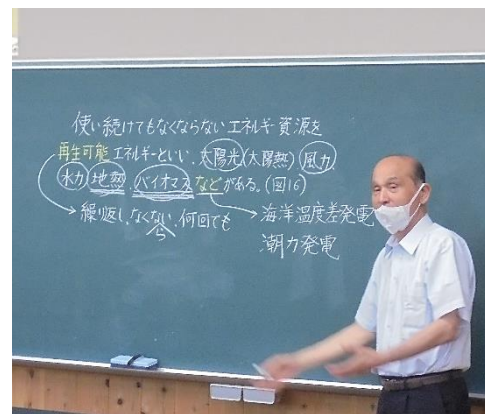 使い続けてもなくならないエネルギー資源を
再生可能エネルギーといい、太陽光(太陽熱)風力、
水力、地熱、バイオマスなどがある。(図16)
→繰り返し、なくならない、何回でも
海洋温度差発電
潮力発電